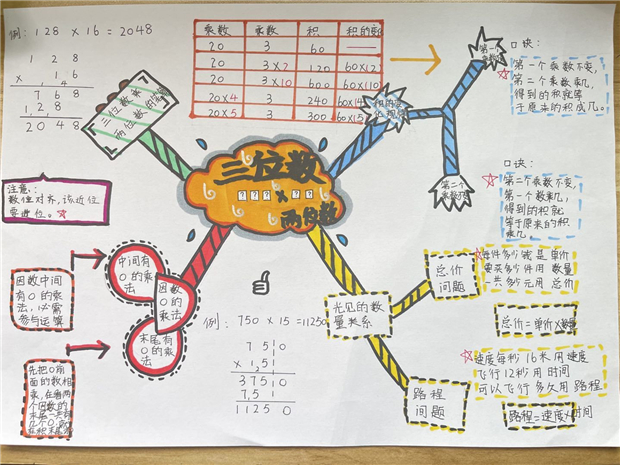 例：128 × 16 = 2048
1 2 8
× 1 6
7 6 8
1 2 8
2 0 4 8
三位数乘
两位数
乘数 乘数 积 积的变
20 3 60 —
20 3×2 120 60×(2)
20 3×10 600 60×(10)
20×4 3 240 60×(4)
20×5 3 300 60×(5)
第一个
口诀：
第一个乘数不变，
第二个乘数乘几，
得到的积就等
于原来的积乘几。
第二个
口诀：
第二个乘数不变，
第一个数乘几，
得到的积就
等于原来的积
乘几。
三位数
×
两位数
注意：
数位对齐，该进位
要进位。
因数中间
有0的乘
法，必需
参与运算
中间有
0的乘
法
因数
0的
乘法
末尾有
0的乘
法
先把0前
面的数相
乘，在看两
个因数的
末尾一共有
几个0，就
在积末尾
例：750 × 15 = 11250
7 5 0
× 1 5
3 7 5 0
7 5
1 1 2 5 0
常见的数
量关系
总价
问题
每件多少钱是单价
要买多少件用数量
一共多少元用总价
总价=单价×数量
路程
问题
速度每秒16米用速度
飞行12秒用时间
可以飞行多久用路程
路程=速度×时间